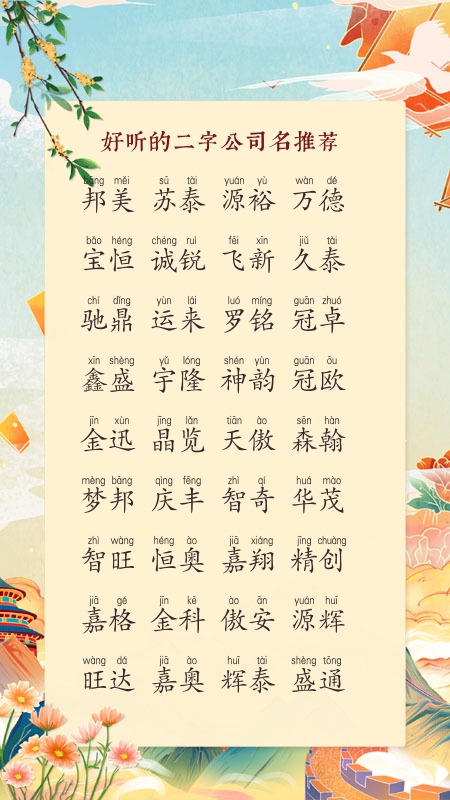 好听的二字公司名推荐
bāng měi sū tài yuán yù wàn dé
邦美 苏泰 源裕 万德
bǎo héng chéng ruì fēi xīn jiǔ tài
宝恒 诚锐 飞新 久泰
chí dǐng yùn lái luó míng guān zhuó
驰鼎 运来 罗铭 冠卓
xīn shèng yǔ lóng shén yùn guān ōu
鑫盛 宇隆 神韵 冠欧
jīn xùn jīng lǎn tiān ào sēn hàn
金迅 晶览 天傲 森翰
mèng bāng qìng fēng zhì qí huá mào
梦邦 庆丰 智奇 华茂
zhì wàng héng ào jiā xiáng jīng chuàng
智旺 恒奥 嘉翔 精创
jiā gé jīn kē ào ān yuán huī
嘉格 金科 傲安 源辉
wàng dá jiā ào huī tài shèng tōng
旺达 嘉奥 辉泰 盛通